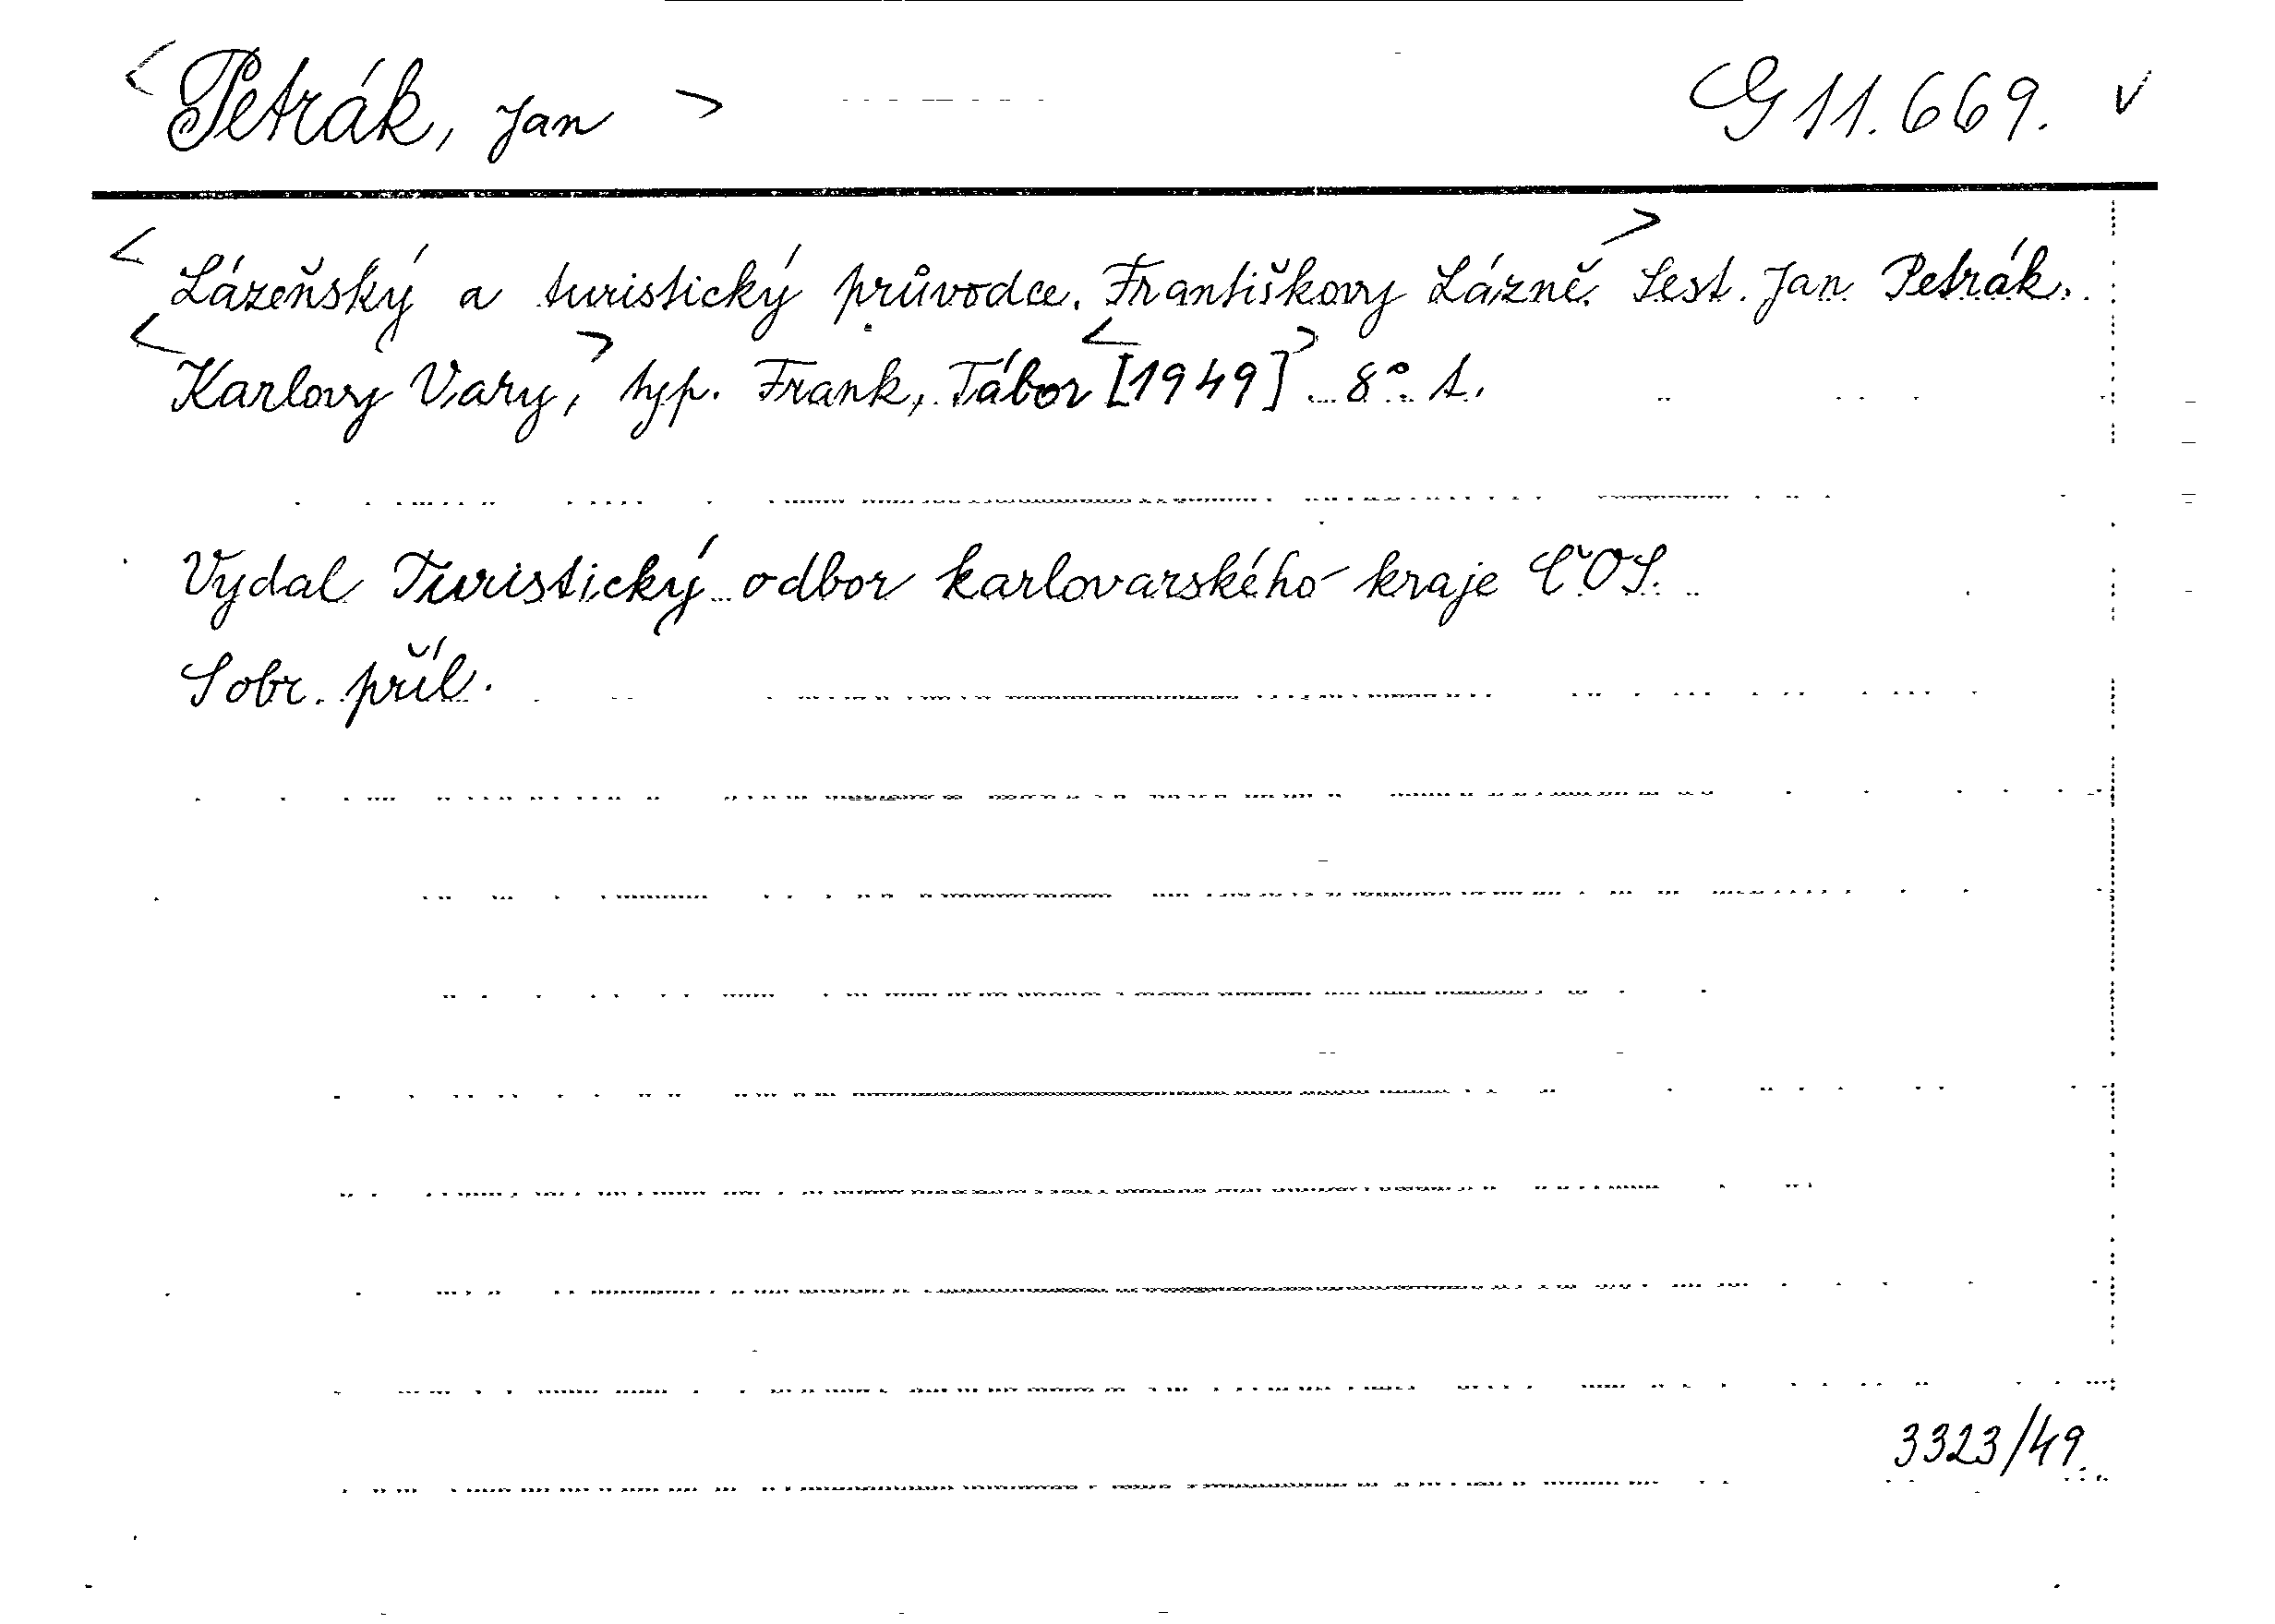 <Petrák, Jan> G 11.669. v
<Lázeňský a turistický průvodce. Františkovy Lázně.> Sest. Jan Petrák.
<Karlovy Vary,> typ. Frank, Tábor <[1949]> 8° 1.
Vydal Turistický odbor karlovarského kraje ČOS.
S obr. příl.
3323/49.